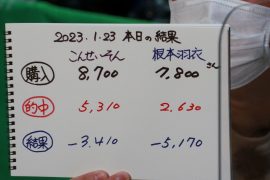 2023.1.23 本日の結果
こんせいそん 根本羽衣さん
購入 8,700 7,800
的中 5,310 2,630
結果 -3,410 -5,170